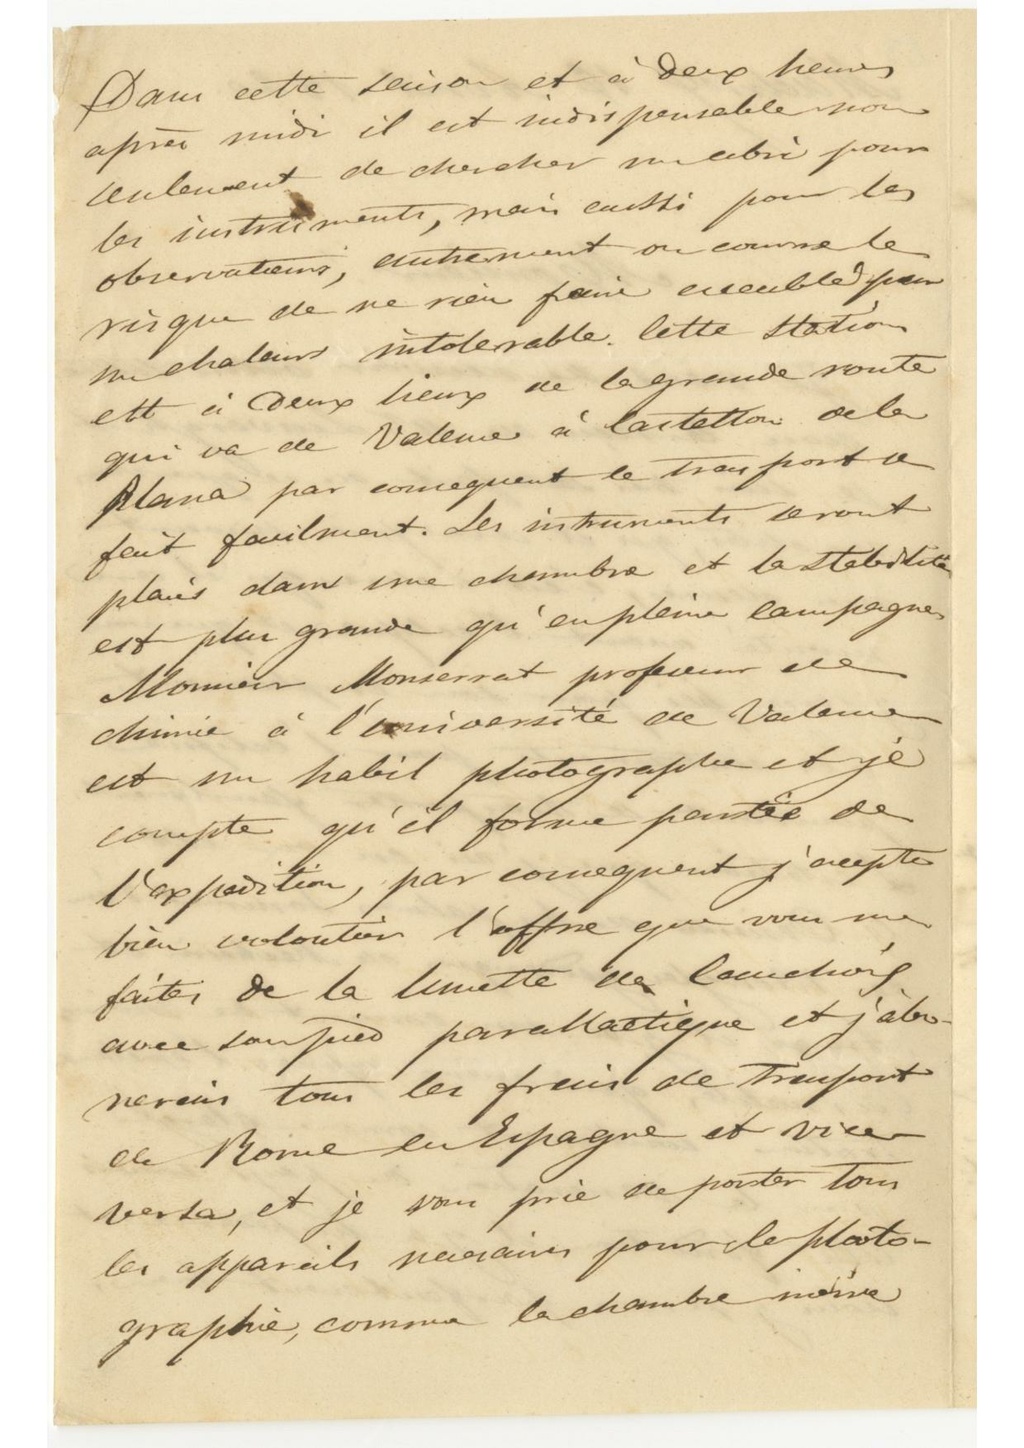 Dans cette saison et à deux heures
après midi il est indispensable non
seulement de chercher un abri pour
les instruments, mais aussi pour les
observateurs, autrement on course le
risque de ne rien faire accablés par
un chaleurs intolerrable. Cette station
est à deux lieux de la grande route
qui va de Valence à Castellon de la
Plana par consequent le transport se
fait facilment. Les instruments seront
placés dans une chambre et la stabilité
est plus grande qu'en pleine campagne
Monsieur Monserrat professeur de
chimie à l'université de Valence
est un habil photographe et je
compte qu'il forme partie de
l'expedition, par consequent j'accepte
bien volontier l'offre que vous me
faites de la lunette de Cauchoix
avec son pied parallactique et j'abo-
nerais tous les frais de transport
de Rome en Espagne et vice
versa, et je vous prie de porter tous
les appareils necesaires pour la photo-
graphie, comme la chambre même